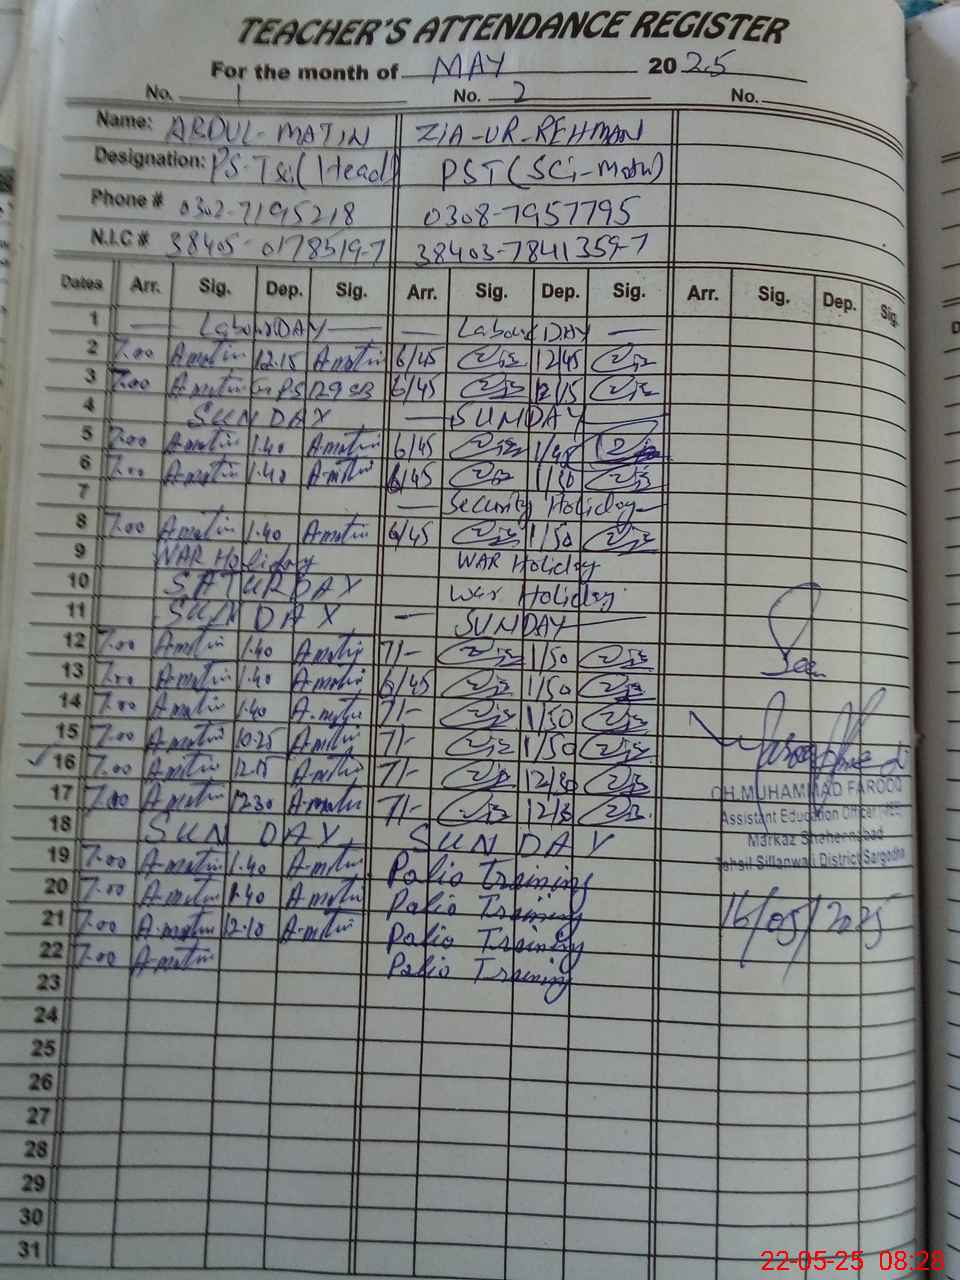 TEACHER'S ATTENDANCE REGISTER
For the month of MAY 2025
No. 1 No. 2 No.
Name: ABDUL-MATIN ZIA-UR-REHMAN
Designation: PS-Tsci(Head) PST(SCi-Math)
Phone # 0302-7195218 0308-7957795
N.I.C # 38405-0178519-7 38403-7841359-7
Dates Arr. Sig. Dep. Sig. Arr. Sig. Dep. Sig. Arr. Sig. Dep. Sig.
1 — Labour DAY — — Labour DAY —
2 7.00 A-matin 12.15 A-matin 6/45 12/45
3 7.00 A-matin 6/45 12/15
4 SUNDAY — SUNDAY —
5 7.00 A-matin 1.40 A-matin 6/45 1/45
6 7.00 A-matin 1.40 A-matin 6/45 1/50
7 — Security Holiday —
8 7.00 A-matin 1.40 A-matin 6/45 1/50
9 WAR Holiday WAR Holiday
10 SATURDAY War Holiday
11 SUNDAY — SUNDAY —
12 7.00 A-matin 1.40 A-matin 7/- 1/50
13 7.00 A-matin 1.40 A-matin 6/45 1/50
14 7.00 A-matin 1.40 A-matin 7/- 1/50
15 7.00 A-matin 10.25 A-matin 7/- 1/50
16 7.00 A-matin 12.15 A-matin 7/- 12/30
17 7.00 A-matin 12.30 A-matin 7/- 12/30
18 SUNDAY SUNDAY
19 7.00 A-matin 1.40 A-matin Polio Training
20 7.00 A-matin 1.40 A-matin Polio Training
21 7.00 A-matin 12.10 A-matin Polio Training
22 7.00 A-matin Polio Training
23
24
25
26
27
28
29
30
31
Seen
CH.MUHAMMAD FAROOQ
Assistant Education Officer
Markaz Shaheenabad
Tehsil Sillanwali District Sargodha
16/05/2025
22-05-25 08:28